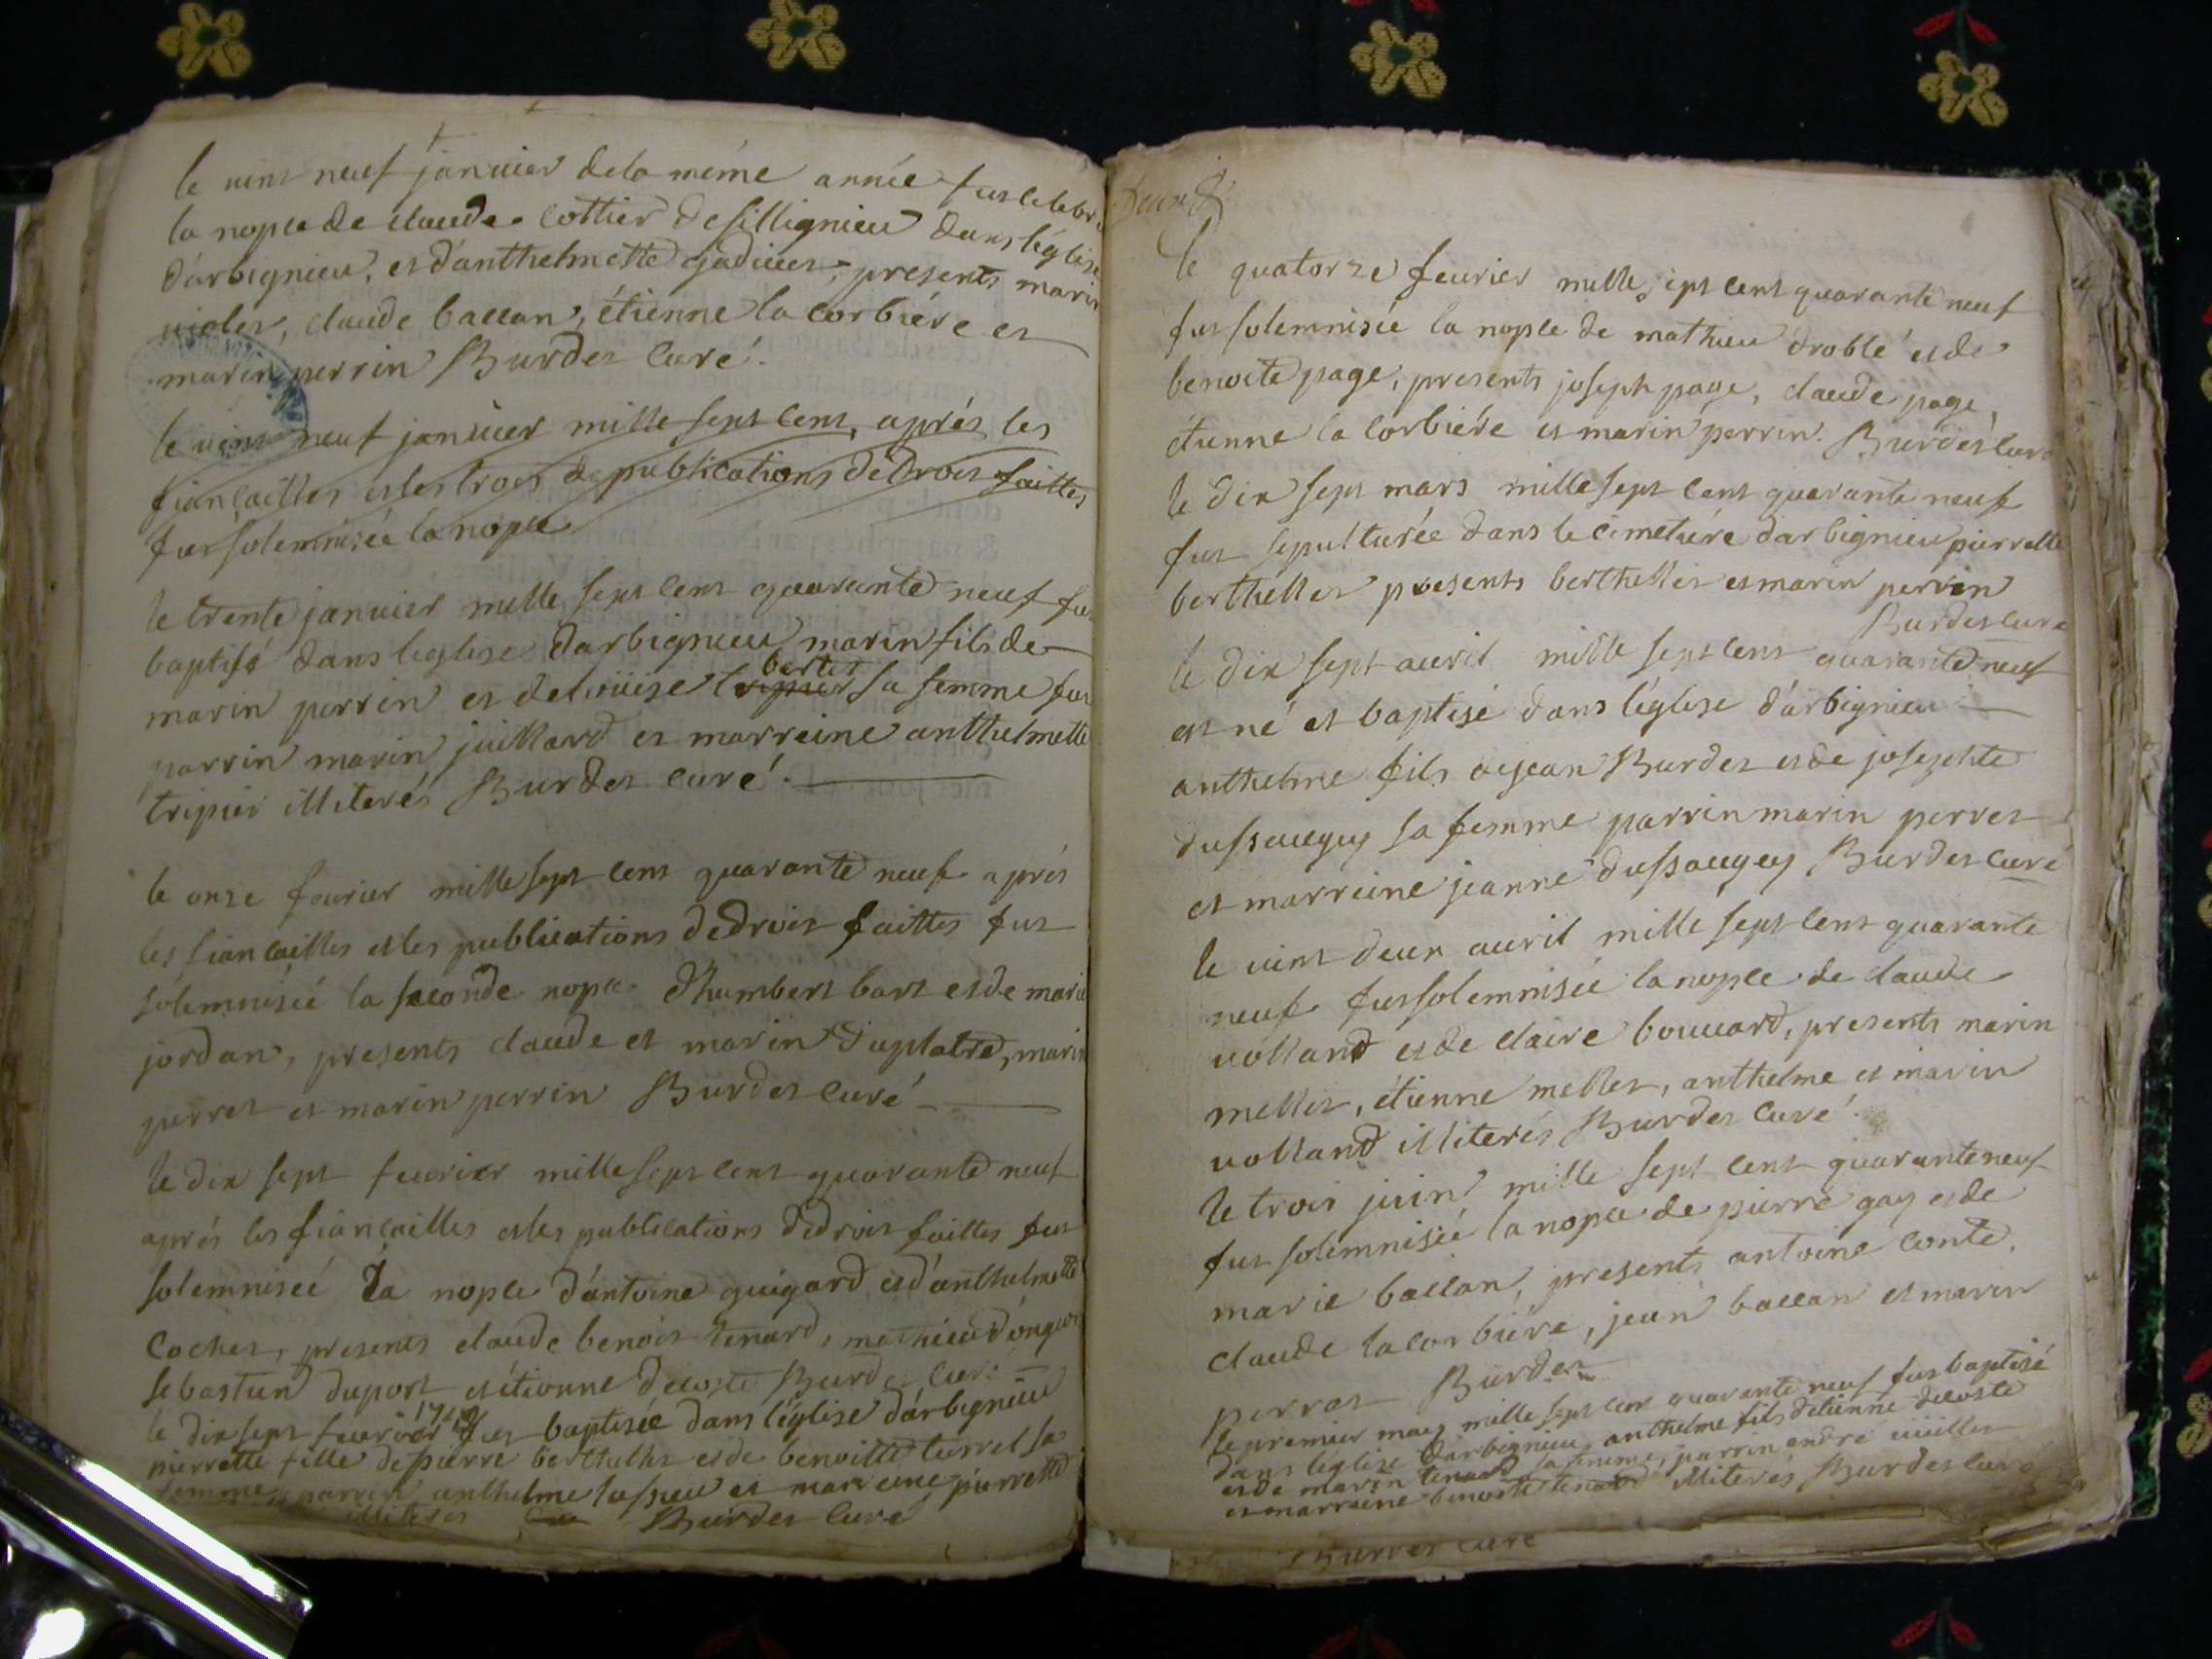 le vint neuf janvier dela même année fut celebré
la nopce de claude cottier de sillignieu dans léglise
d'arbignieu, et d'anthelmette gadiuet, presents marin
violet, claude ballan, étienne la corbiére et
marin perrin Burdet curé.
le vint neuf janvier mille sept cent, aprés les
fiancailles et les trois de publications de trois faittes
fut solemnisée la nopce
le trente janvier mille sept cent quarante neuf fut
baptisé dans leglise darbignieu marin fils de
bertet
marin perrin et de loüise tripier sa femme fut
parrin marin juillard et marreine anthelmette
tripier illiterés Burdet curé.
le onze fevrier mille sept cent quarante neuf aprés
les fiancailles et les publications de droit faittes fut
solemnisée la seconde nopce d'humbert bart et de marie
jordan, presents claude et marin duplatre, marin
perret et marin perrin Burdet curé
le dix sept fevrier mille sept cent quarante neuf
aprés les fiancailles et les publications de droit faittes fut
solemniseé la nopce d'antoine guigard et d'anthelmette
cochet, presents claude benoit tenard, mathieu
sebastien duport et étienne decoste Burdet curé
1749
le dix sept fevrier fut baptisée dans l'église d'arbignieu
pierrette fille de pierre berthellet et de benoitte terrel sa
femme, parrin anthelme sassieu et marreine pierrette
illiterés Burdet curé
le quatorze fevrier mille sept cent quarante neuf
fut solemnisée la nopce de mathieu droblé et de
benoite page, presents joseph page, claude page,
étienne la corbiére et marin perrin. Burdet curé
le dix sept mars mille sept cent quarante neuf
fut sepulturée dans le cimetiére darbignieu pierrette
berthellet presents berthellet et marin perrin
Burdet curé
le dix sept avril mille sept cent quarante neuf
est né et baptisé dans léglise d'arbignieu
anthelme fils de jean Burdet et de josephte
dussaugey sa femme parrin marin perret
et marreine jeanne dussaugey Burdet curé
le vint deux avril mille sept cent quarante
neuf fut solemnisée la nopce de claude
volland et de claire bouvard, presents marin
mellet, étienne mellet, anthelme et marin
volland illiterés Burdet curé.
le trois juin mille sept cent quarante neuf
fut solemnisée la nopce de pierre gay et de
marie ballan, presents antoine conte,
claude lacorbiére, jean ballan et marin
perret Burdet
le premier may mille sept cent quarante neuf fut baptisé
dans léglise darbignieu anthelme fils detienne decoste
et de marin tenard sa femme, parrin andré
et marraine benoite tenard illiterés Burdet curé
Burdet curé